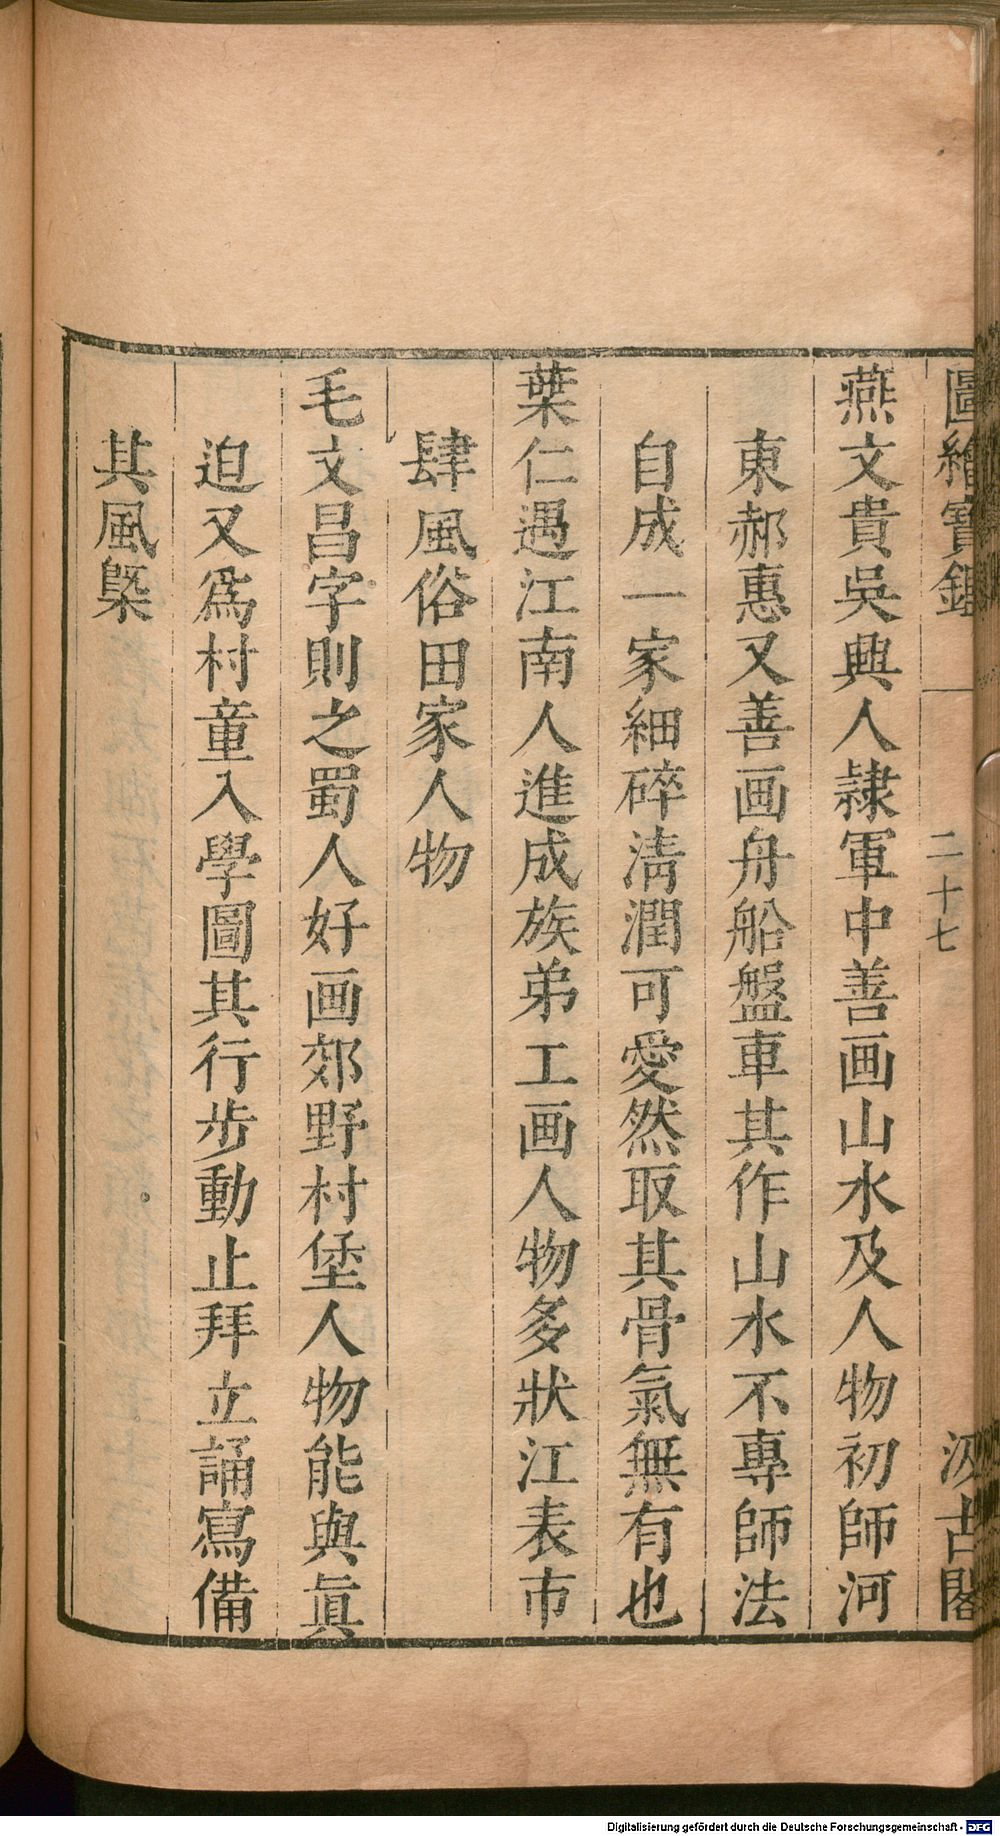 圖繪寶鑑
二十七
汲古閣
燕文貴吳興人隷軍中善画山水及人物初師河
東郝惠又善画舟船盤車其作山水不專師法
自成一家細碎淸潤可愛然取其骨氣無有也
葉仁遇江南人進成族弟工画人物多狀江表市
肆風俗田家人物
毛文昌字則之蜀人好画郊野村堡人物能與眞
迫又爲村童入學圖其行步動止拜立誦寫備
其風槩
Digitalisierung gefördert durch die Deutsche Forschungsgemeinschaft - DFG